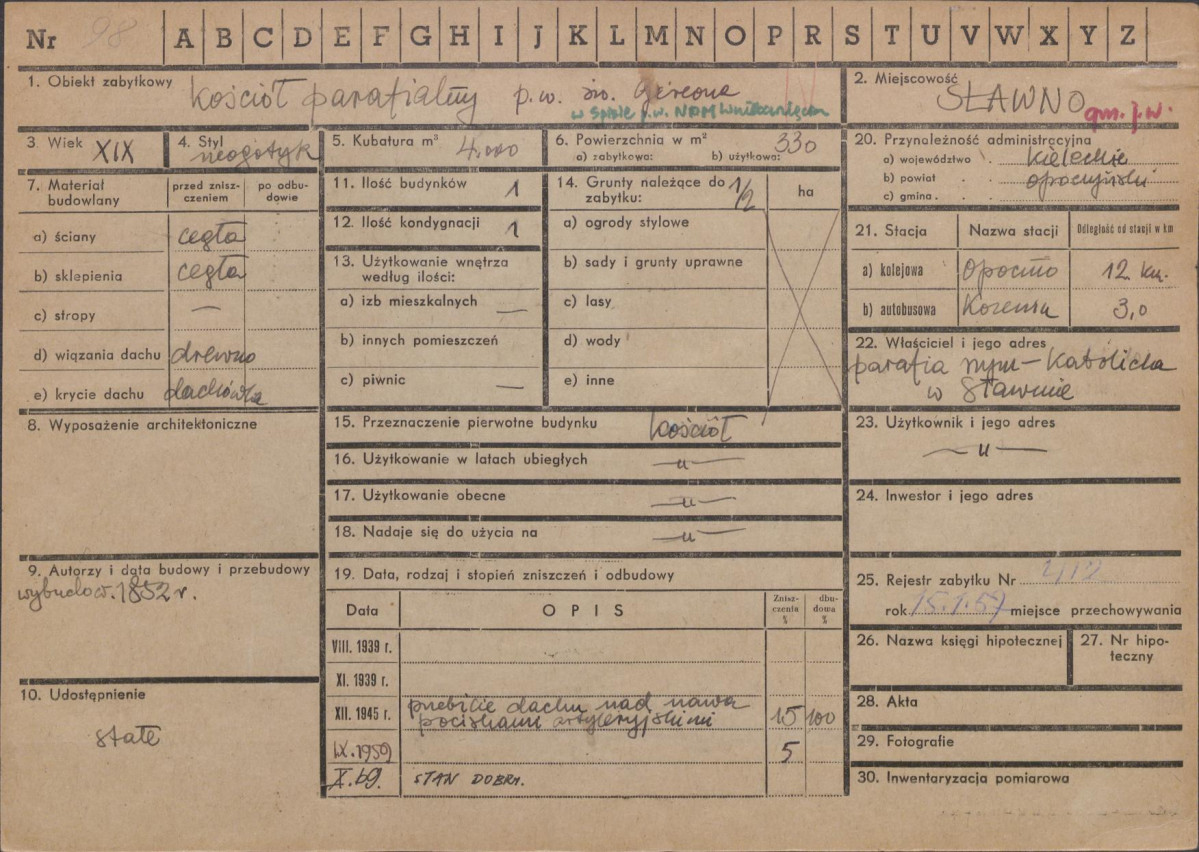 Nr 98 A B C D E F G H I J K L M N O P R S T U V W X Y Z
1. Obiekt zabytkowy kościół parafialny p.w. św. Gereona
w spisie p.w. NPM Wniebowzięcia
2. Miejscowość
SŁAWNO
gm. j.w.
3. Wiek XIX
4. Styl
neogotyk
5. Kubatura m³ 4.000
6. Powierzchnia w m² 330
a) zabytkowa: b) użytkowa:
7. Materiał budowlany
przed zniszczeniem
po odbudowie
a) ściany cegła
b) sklepienia cegła
c) stropy —
d) wiązania dachu drewno
e) krycie dachu dachówka
8. Wyposażenie architektoniczne
9. Autorzy i data budowy i przebudowy
wybudow. 1852 r.
10. Udostępnienie
stałe
11. Ilość budynków 1
12. Ilość kondygnacji 1
13. Użytkowanie wnętrza
według ilości:
a) izb mieszkalnych —
b) innych pomieszczeń
c) piwnic —
14. Grunty należące do
zabytku: 1/2
ha
a) ogrody stylowe
b) sady i grunty uprawne
c) lasy
d) wody
e) inne
15. Przeznaczenie pierwotne budynku kościół
16. Użytkowanie w latach ubiegłych —u—
17. Użytkowanie obecne —u—
18. Nadaje się do użycia na —u—
19. Data, rodzaj i stopień zniszczeń i odbudowy
Data OPIS Zniszczenia % dbudowa %
VIII. 1939 r.
XI. 1939 r.
XII. 1945 r. przebicie dachu nad nawą
pociskami artyleryjskimi 15 100
IX. 1959 5
X. 69. STAN DOBRY.
20. Przynależność administracyjna
a) województwo kieleckie
b) powiat opoczyński
c) gmina
21. Stacja Nazwa stacji Odległość od stacji w km
a) kolejowa Opoczno 12 km.
b) autobusowa 3,0
22. Właściciel i jego adres
parafia rzym-katolicka
w Sławnie
23. Użytkownik i jego adres
—u—
24. Inwestor i jego adres
25. Rejestr zabytku Nr 412
rok 15.1.57 miejsce przechowywania
26. Nazwa księgi hipotecznej
27. Nr hipoteczny
28. Akta
29. Fotografie
30. Inwentaryzacja pomiarowa